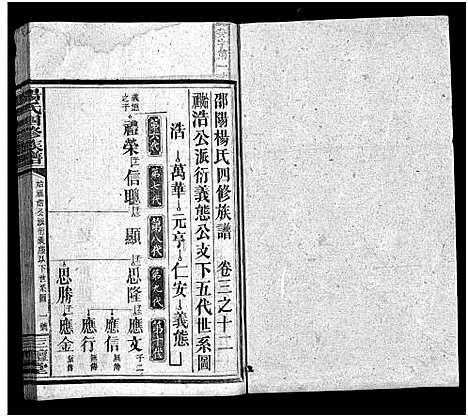 邵陽楊氏四修族譜 卷三之十二
浩公派衍義態公支下五代世系圖
浩 萬華 元亨 仁安 義態
第六代 第七代 第八代 第九代 第十代
義態之子 禮榮 信聰 顯 思隆 應文 子二
應信 無傳
應行 無傳
思勝 應金 無傳
楊氏四修族譜